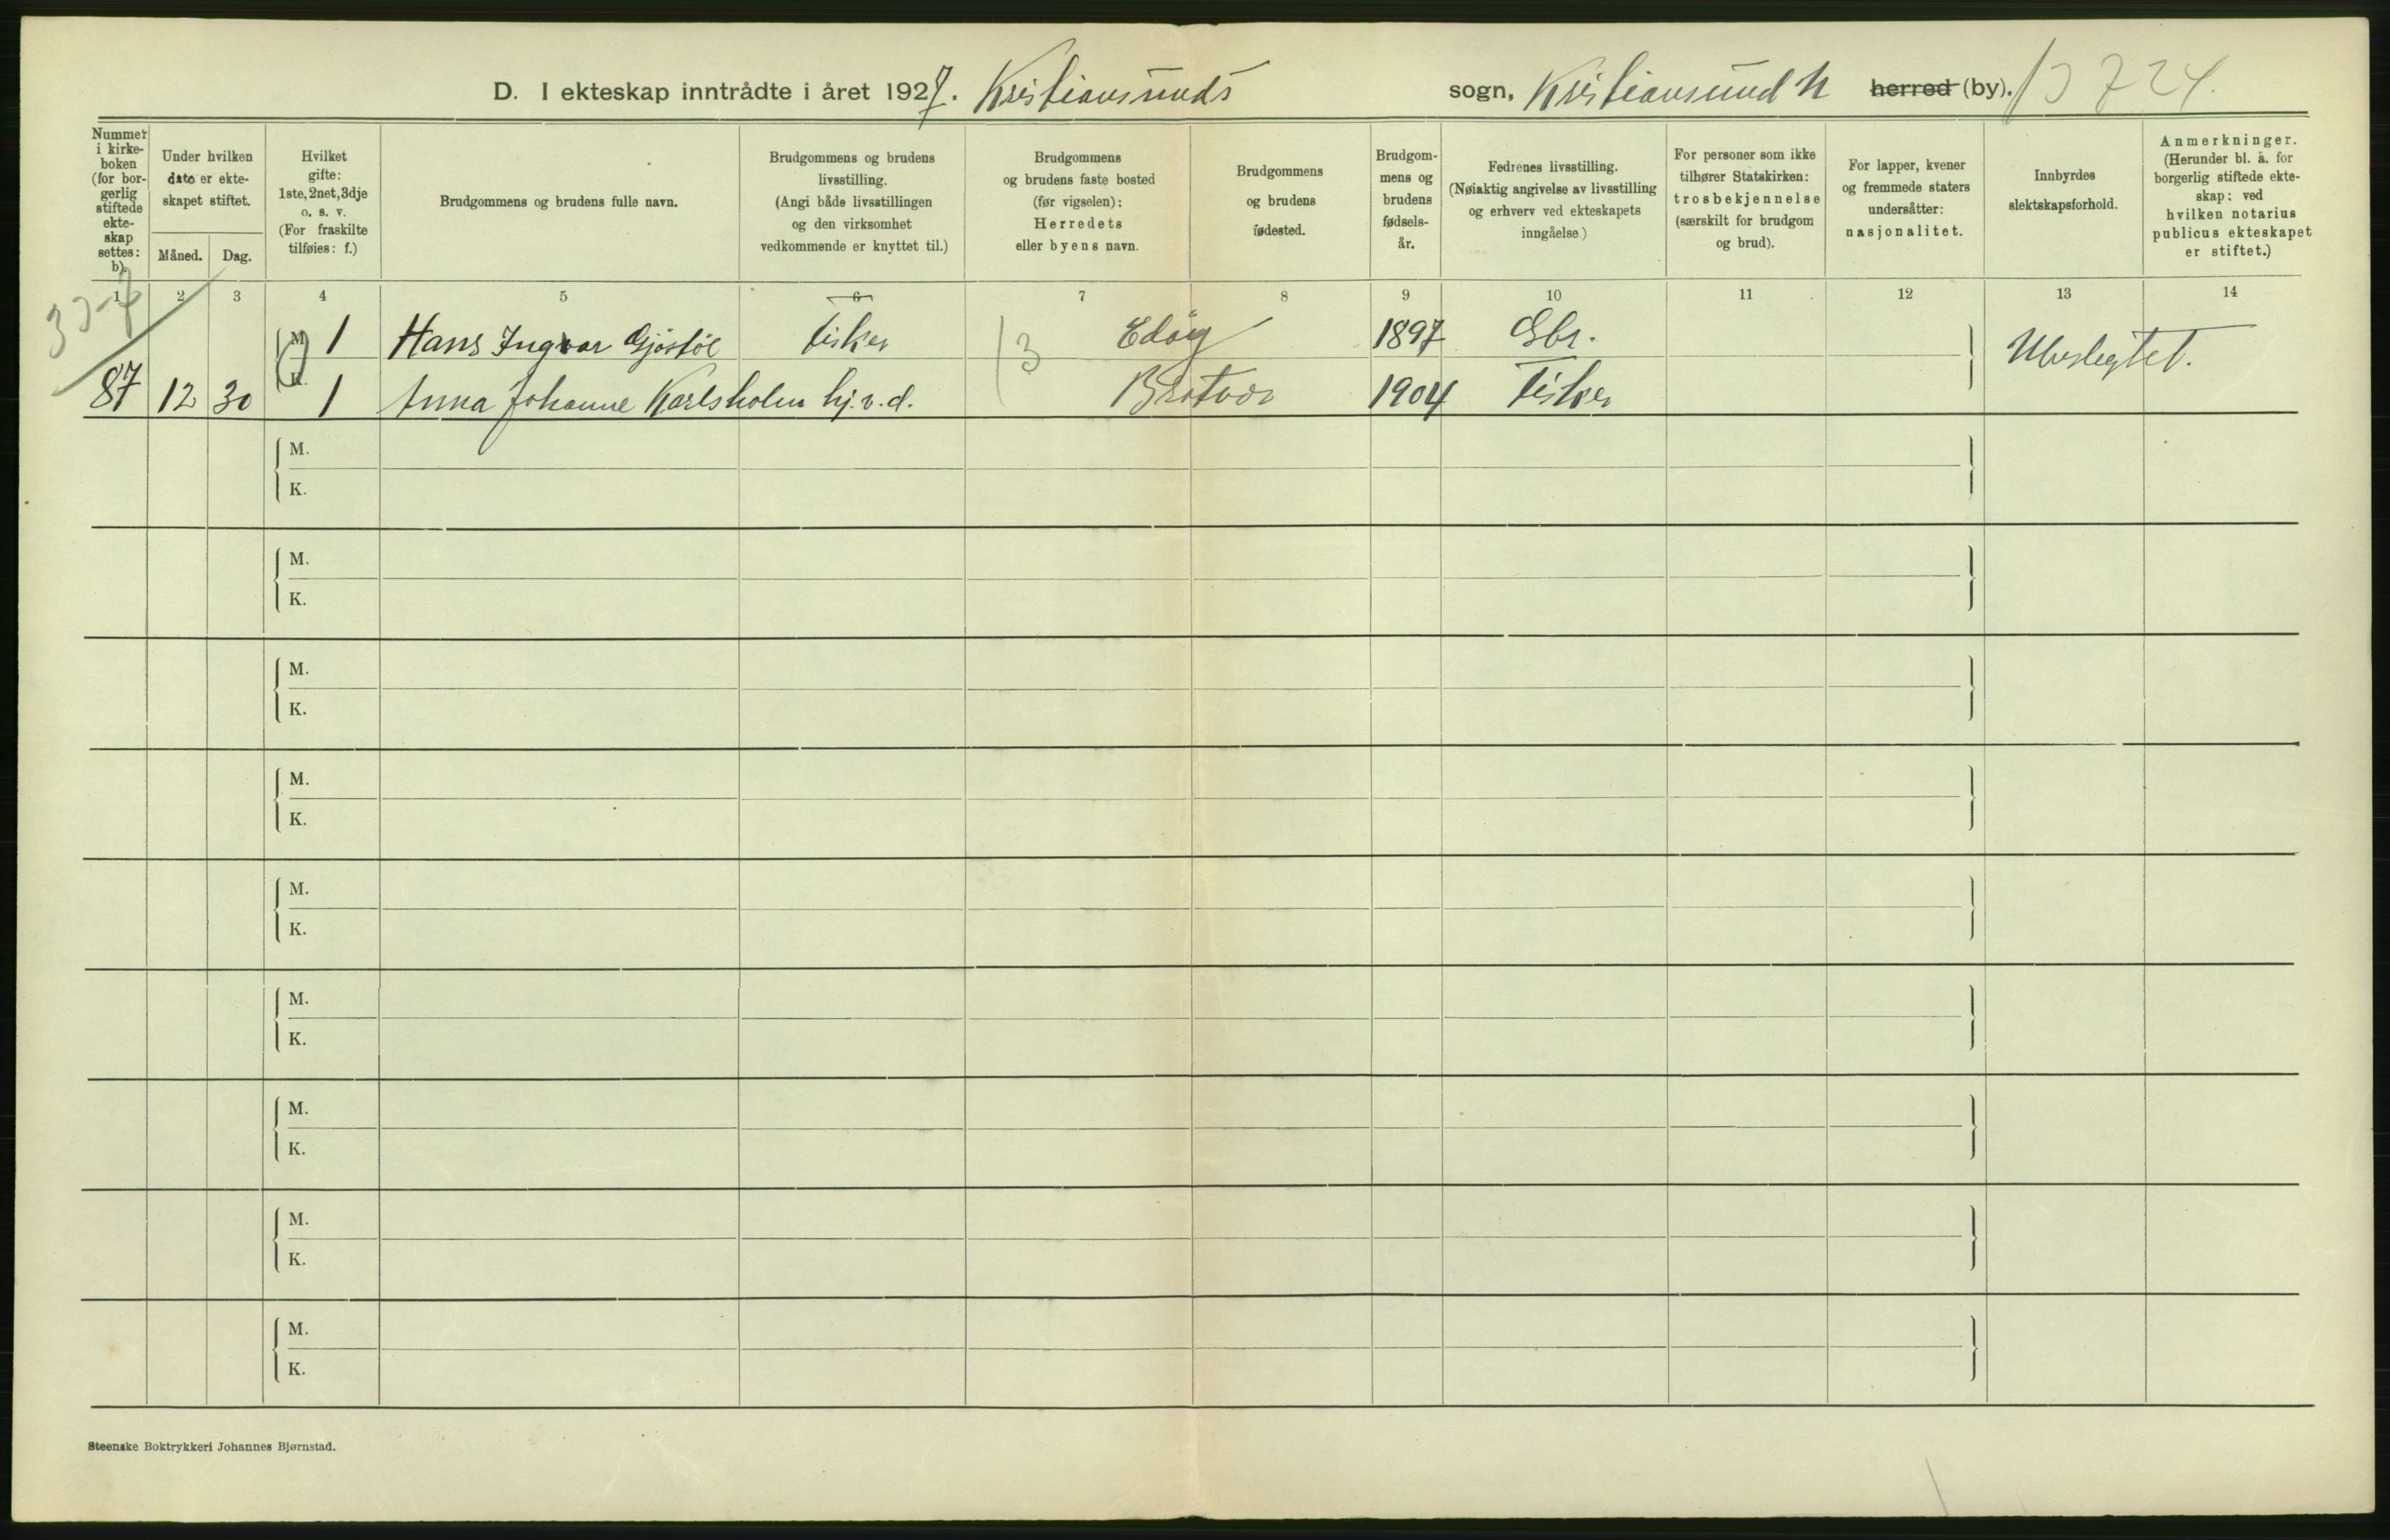 D. I ekteskap inntrådte i året 1927. Kristiansunds sogn, Kristiansund N herred (by). 13724.
Nummer i kirkeboken (for borgerlig stiftede ekteskap settes: b).
Under hvilken dato er ekteskapet stiftet.
Måned. Dag.
Hvilket gifte: 1ste, 2net, 3dje o. s. v. (For fraskilte tilføies: f.)
Brudgommens og brudens fulle navn.
Brudgommens og brudens livsstilling. (Angi både livsstillingen og den virksomhet vedkommende er knyttet til.)
Brudgommens og brudens faste bosted (før vigselen): Herredets eller byens navn.
Brudgommens og brudens fødested.
Brudgommens og brudens fødselsår.
Fedrenes livsstilling. (Nøiaktig angivelse av livsstilling og erhverv ved ekteskapets inngåelse)
For personer som ikke tilhører Statskirken: trosbekjennelse (særskilt for brudgom og brud).
For lapper, kvener og fremmede staters undersåtter: nasjonalitet.
Innbyrdes slektskapsforhold.
Anmerkninger. (Herunder bl. a. for borgerlig stiftede ekteskap: ved hvilken notarius publicus ekteskapet er stiftet.)
1 2 3 4 5 6 7 8 9 10 11 12 13 14
M. 1 Hans Ingvar Gjøstøl Fisker 3 Edøy 1897 Gbr. Ubeslegtet.
87 12 30 K. 1 Anna Johanne Karlsholm hj. v. d. Bratvær 1904 Fisker
M.
K.
M.
K.
M.
K.
M.
K.
M.
K.
M.
K.
M.
K.
M.
K.
M.
K.
Steenske Boktrykkeri Johannes Bjørnstad.